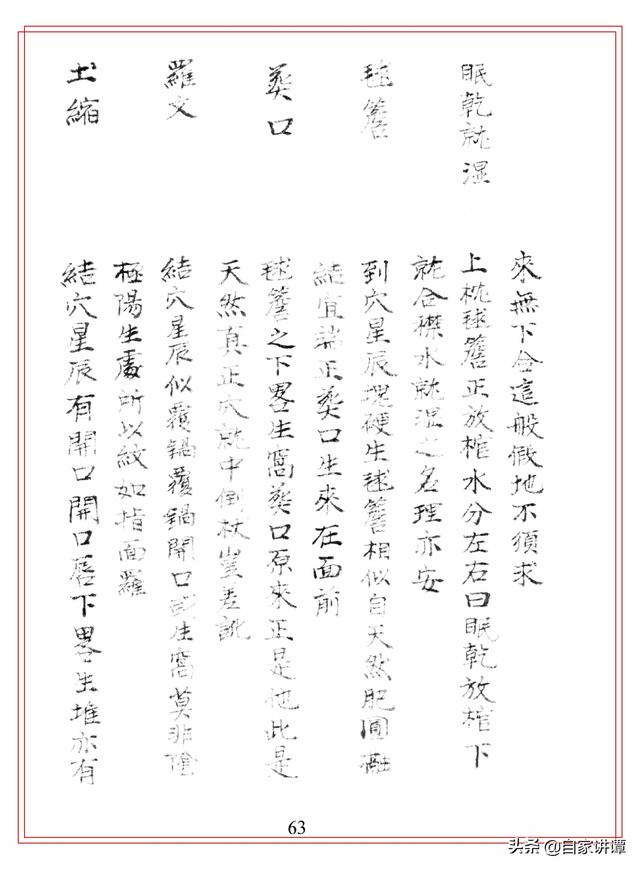 來無下合這般假地不須求
眠乾就湿
上枕毬簷正放棺水分左右曰眠乾放棺下
就合襟水就湿之名理亦安
毬簷
到穴星辰塊硬生毬簷相似自天然肥圓融
結宜端正葬口生來在面前
葬口
毬簷之下畧生窩葬口原來正是他此是
天然真正穴就中倒杖豈差訛
羅文
結穴星辰似覆鍋覆鍋開口或生窩莫非陰
極陽生處所以紋如指面羅
土縮
結穴星辰有開口開口唇下畧生堆亦有
63
头条 @自家讲谭